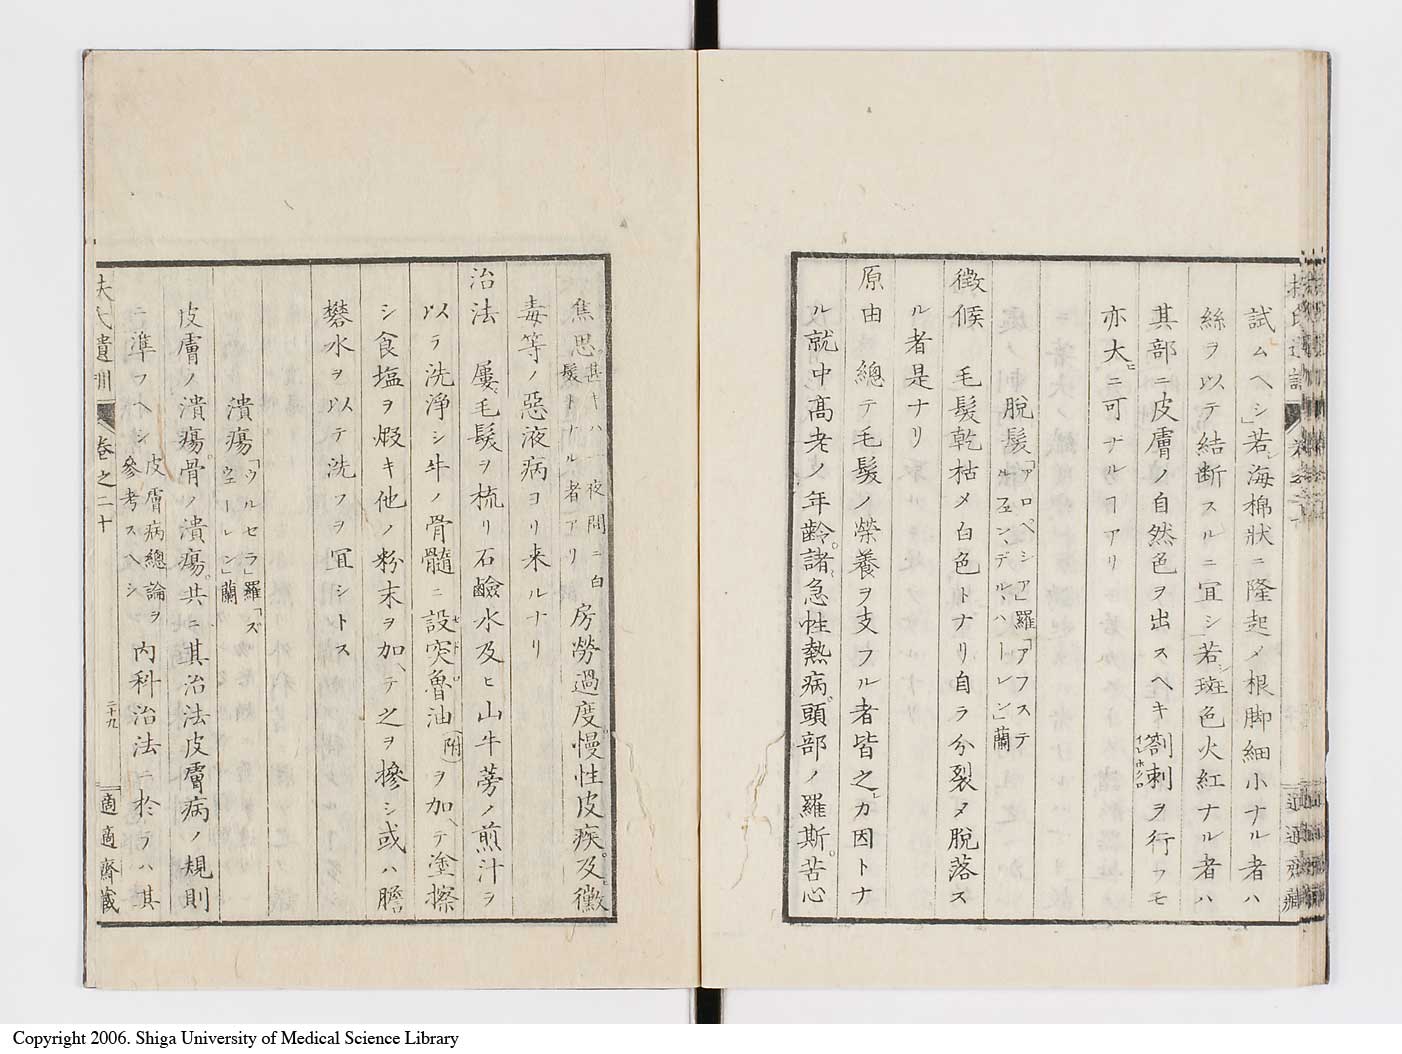 試ムヘシ」若シ海棉狀ニ隆起メ根脚細小ナル者ハ
絲ヲ以テ結断スルニ冝シ若シ斑色火紅ナル者ハ
其部ニ皮膚ノ自然色ヲ出スヘキ劄刺ヲ行フモ
亦大ニ可ナルヿアリ
脫髮「アロペシア」羅「アフステ
ルフェンデル、ハーレン」蘭
徵候 毛髮乾枯メ白色トナリ自ラ分裂メ脫落ス
ル者是ナリ
原由 總テ毛髮ノ榮養ヲ支フル者皆之カ因トナ
ル就中髙老ノ年齡諸急性熱病頭部ノ羅斯苦心
焦思甚キハ一夜間ニ白
髮トナル者アリ
房勞過度慢性皮疾及ヒ黴
毒等ノ惡液病ヨリ来ルナリ
治法 屢毛髮ヲ梳リ石鹼水及ヒ山牛蒡ノ煎汁ヲ
以テ洗浄シ牛ノ骨髓ニ設突魯油(附)ヲ加ヘテ塗擦
シ食塩ヲ煅キ他ノ粉末ヲ加ヘテ之ヲ摻シ或ハ膽
礬水ヲ以テ洗フヲ冝シトス
潰瘍「ウルセラ」羅「ズ
ウェーレン」蘭
皮膚ノ潰瘍骨ノ潰瘍共ニ其治法皮膚病ノ規則
ニ準フヘシ皮膚病總論ヲ
參考スヘシ
内科治法ニ於テハ其
扶氏遺訓 卷之二十 二十九 適適齋藏
Copyright 2006. Shiga University of Medical Science Library